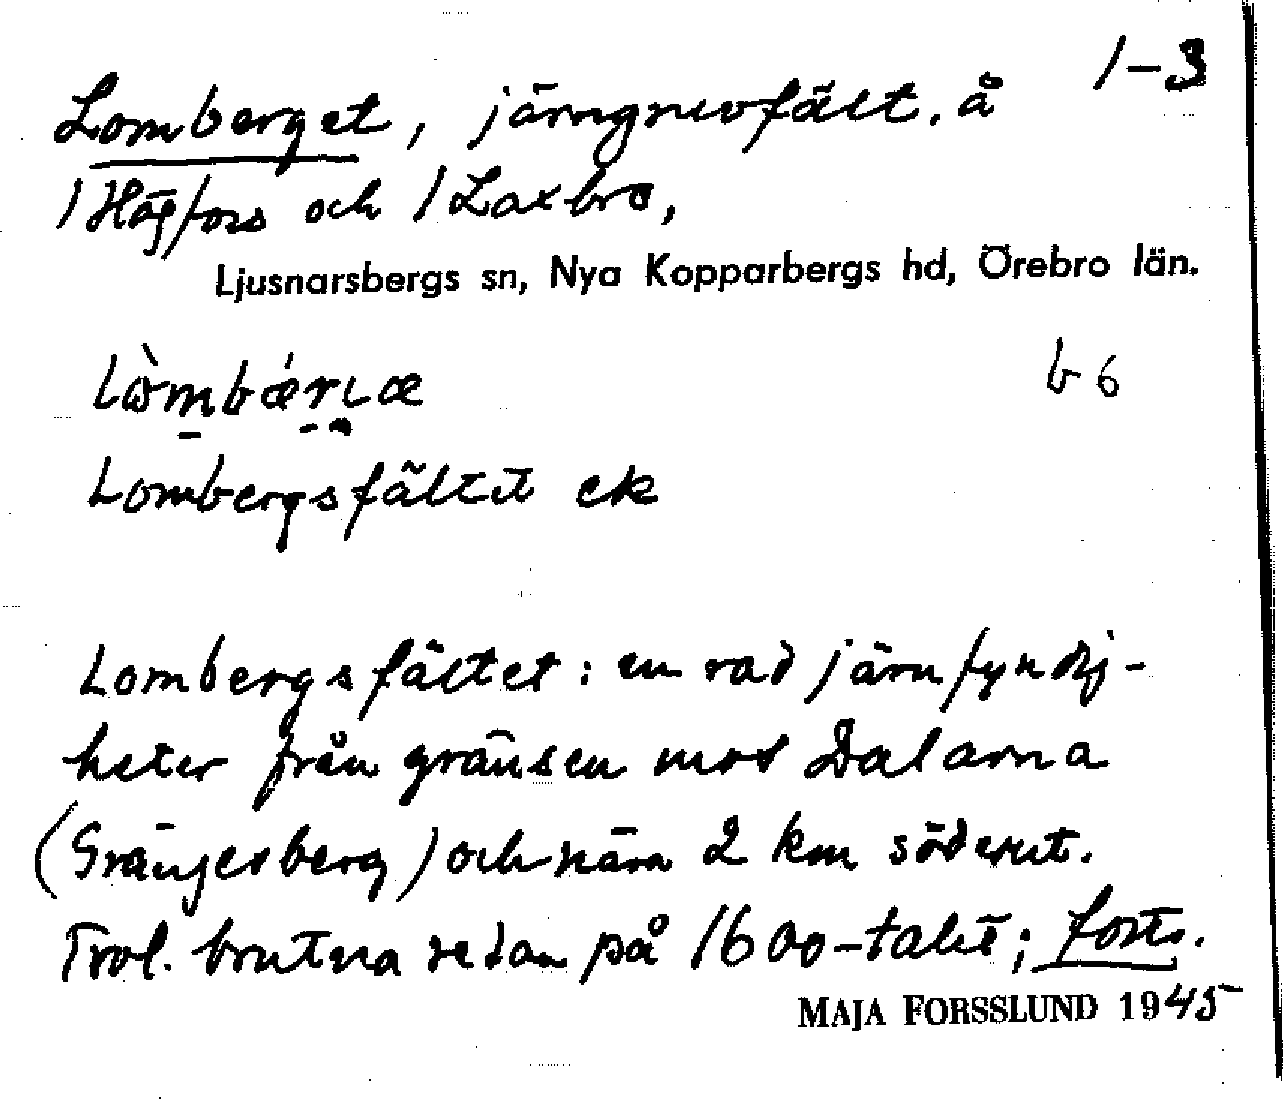 1-3
Lomberget, järngruvfält, å
1 Högfors och 1 Laxbro,
Ljusnarsbergs sn, Nya Kopparbergs hd, Örebro län.
b 6
Lombergsfältet ek
Lombergsfältet: en rad järnfyndig-
heter från gränsen mot Dalarna
(Grängesberg) och nära 2 km söderut.
Trol. brutna redan på 1600-talet; forts.
MAJA FORSSLUND 1945